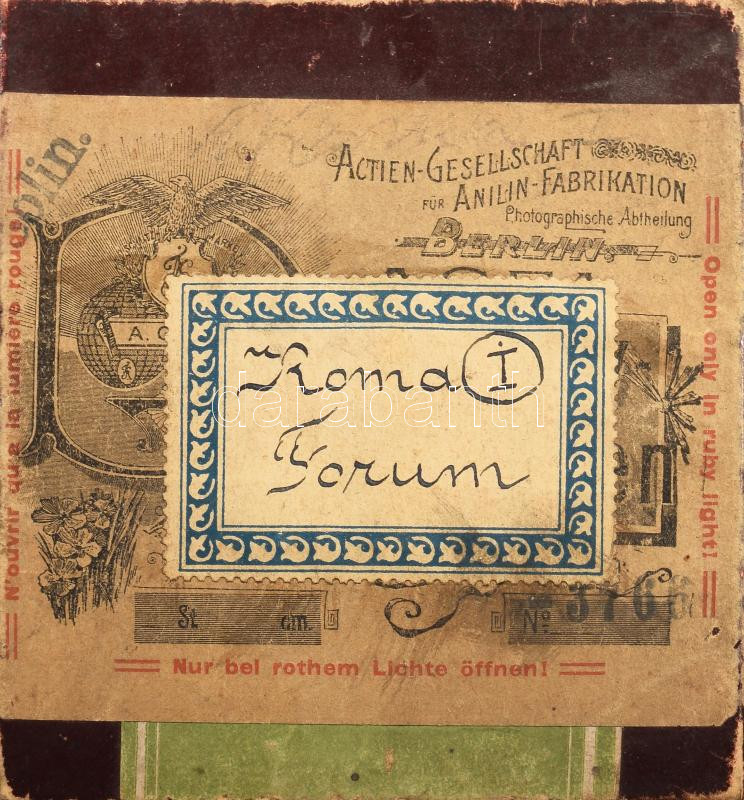 ACTIEN-GESELLSCHAFT
FÜR ANILIN-FABRIKATION
Photographische Abtheilung
BERLIN
Roma I
Forum
darabanth
St cm.
No 3766
Nur bei rothem Lichte öffnen!
N'ouvrir qu'à la lumière rouge!
Open only in ruby light!